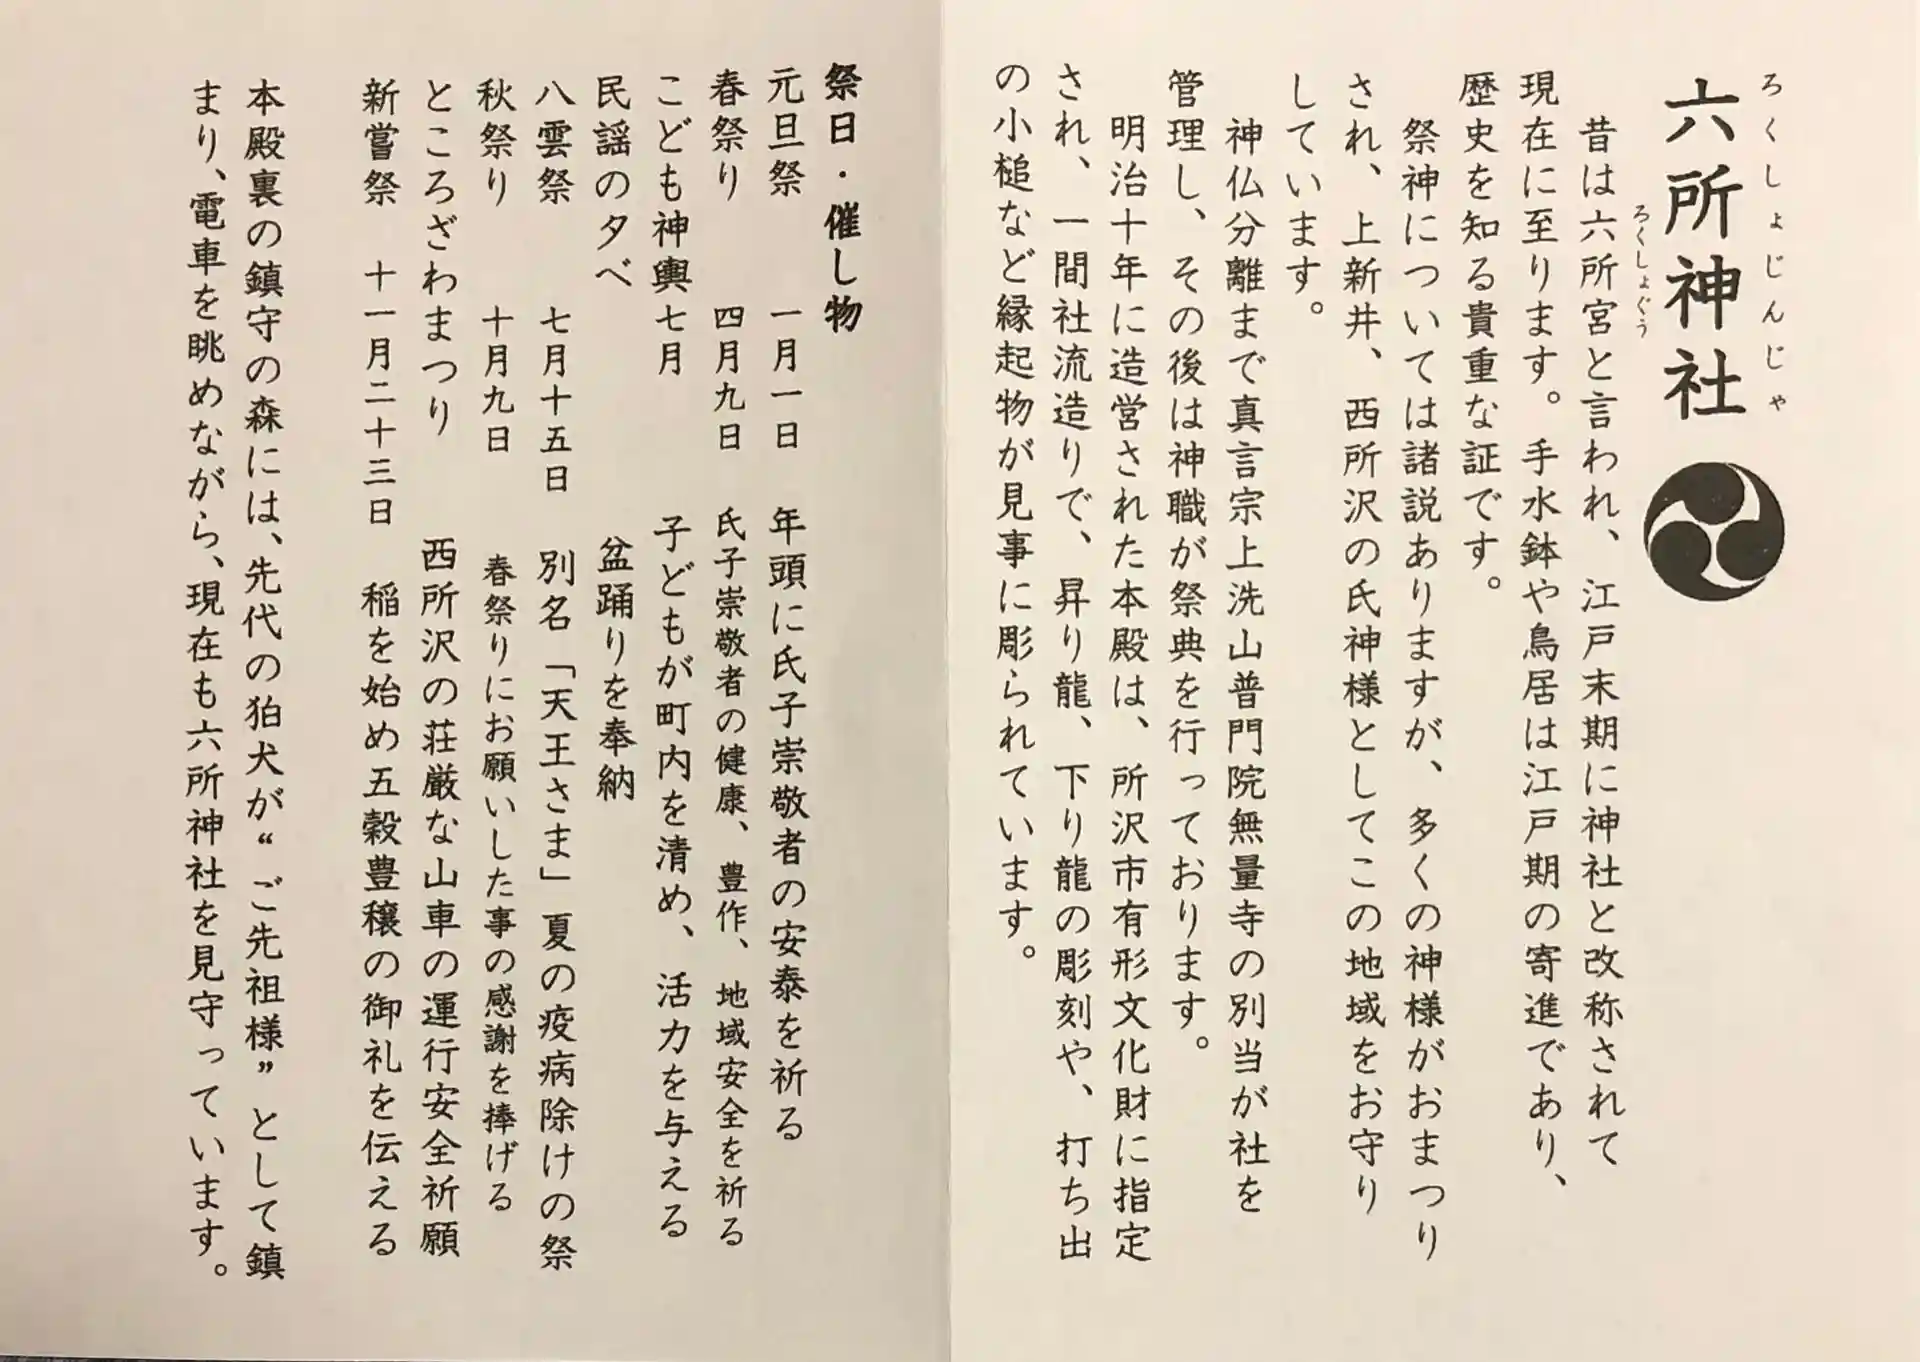 ろくしょじんじゃ
六所神社
ろくしょぐう
昔は六所宮と言われ、江戸末期に神社と改称されて
現在に至ります。手水鉢や鳥居は江戸期の寄進であり、
歴史を知る貴重な証です。
祭神については諸説ありますが、多くの神様がおまつり
され、上新井、西所沢の氏神様としてこの地域をお守り
しています。
神仏分離まで真言宗上洗山普門院無量寺の別当が社を
管理し、その後は神職が祭典を行っております。
明治十年に造営された本殿は、所沢市有形文化財に指定
され、一間社流造りで、昇り龍、下り龍の彫刻や、打ち出
の小槌など縁起物が見事に彫られています。
祭日・催し物
元旦祭 一月一日 年頭に氏子崇敬者の安泰を祈る
春祭り 四月九日 氏子崇敬者の健康、豊作、地域安全を祈る
こども神輿 七月 子どもが町内を清め、活力を与える
民謡の夕べ 盆踊りを奉納
八雲祭 七月十五日 別名「天王さま」夏の疫病除けの祭
秋祭り 十月九日 春祭りにお願いした事の感謝を捧げる
ところざわまつり 西所沢の荘厳な山車の運行安全祈願
新嘗祭 十一月二十三日 稲を始め五穀豊穣の御礼を伝える
本殿裏の鎮守の森には、先代の狛犬が“ご先祖様”として鎮
まり、電車を眺めながら、現在も六所神社を見守っています。